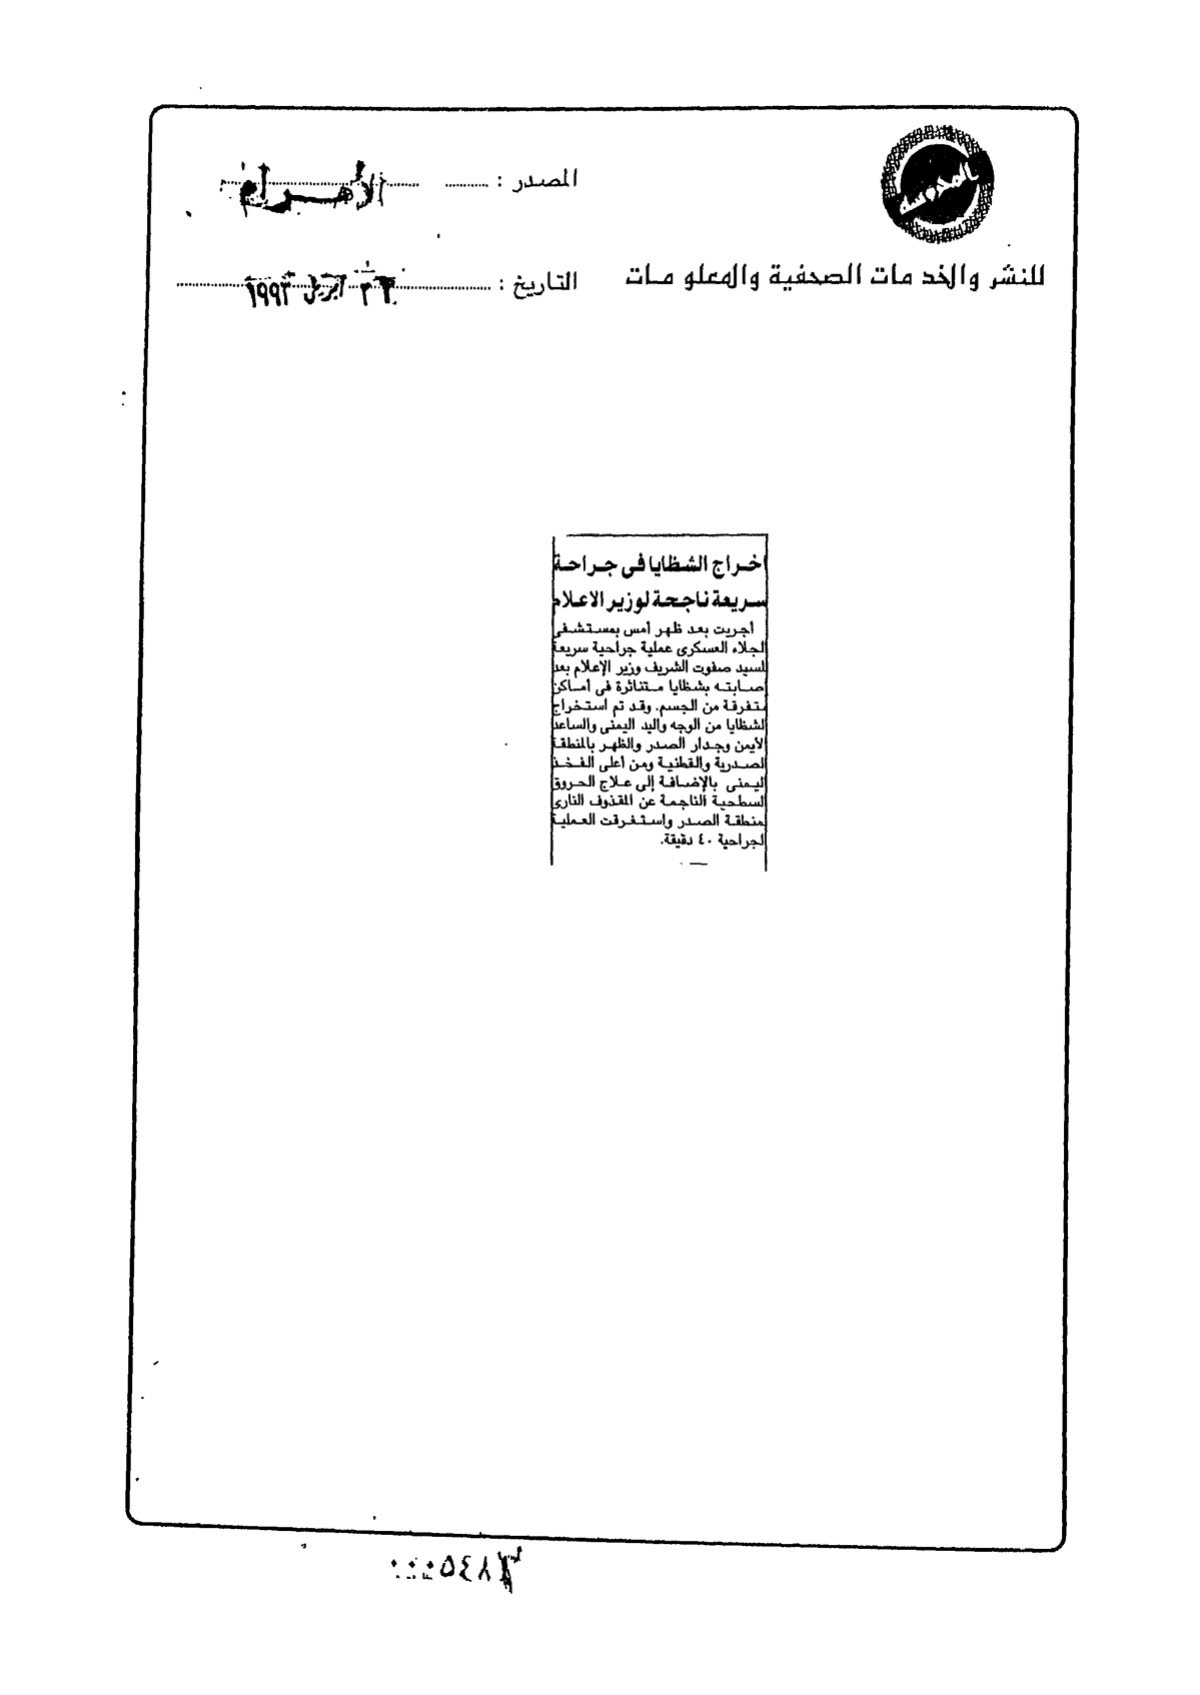 المصدر : الأهرام
للنشر والخدمات الصحفية والمعلومات
التاريخ : أبريل ١٩٩٣
اخراج الشظايا فى جراحة
سريعة ناجحة لوزير الاعلام
أجريت بعد ظهر أمس بمستشفى
لجلاء العسكرى عملية جراحية سريعة
لسيد صفوت الشريف وزير الإعلام بعد
صابته بشظايا متناثرة فى أماكن
تفرقة من الجسم. وقد تم استخراج
لشظايا من الوجه واليد اليمنى والساعد
لأيمن وجدار الصدر والظهر بالمنطقة
لصدرية والقطنية ومن أعلى الفخذ
ليمنى بالإضافة إلى علاج الحروق
لسطحية الناجمة عن المقذوف النارى
منطقة الصدر واستغرقت العملية
لجراحية ٤٠ دقيقة.